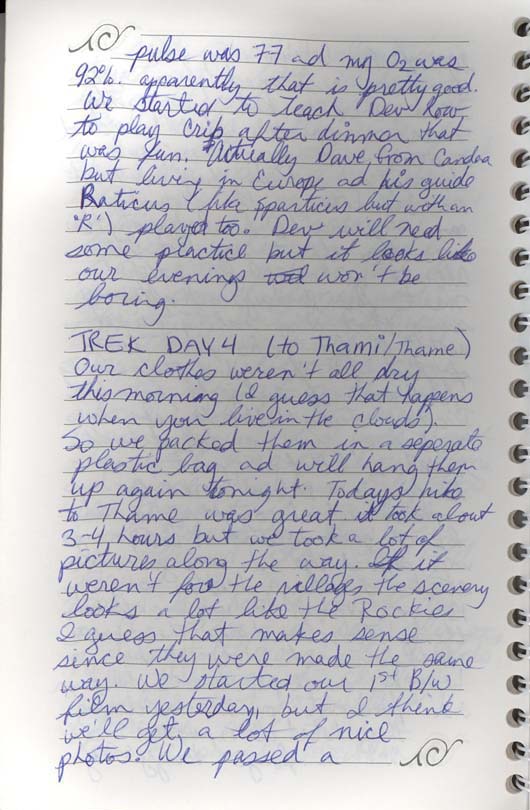 pulse was 77 ad my O2 was
92%. apparently that is pretty good.
We started to teach Dev how
to play crip after dinner that
was fun. Actually Dave from Candea
but living in Europe ad his guide
Raticus (like sparticus but with an
"R") played too. Dev will need
some practice but it looks like
our evenings won't be
boring.
TREK DAY 4 (to Thami/Thame)
Our clothes weren't all dry
this morning (I guess that happens
when you live in the clouds).
So we packed them in a seperate
plastic bag ad will hang them
up again tonight. Todays hike
to Thame was great it took about
3-4 hours but we took a lot of
pictures along the way. If it
weren't for the villages the scenery
looks a lot like the Rockies
I guess that makes sense
since they were made the same
way. We started our 1st B/W
film yesterday, but I think
we'll get a lot of nice
photos. We passed a